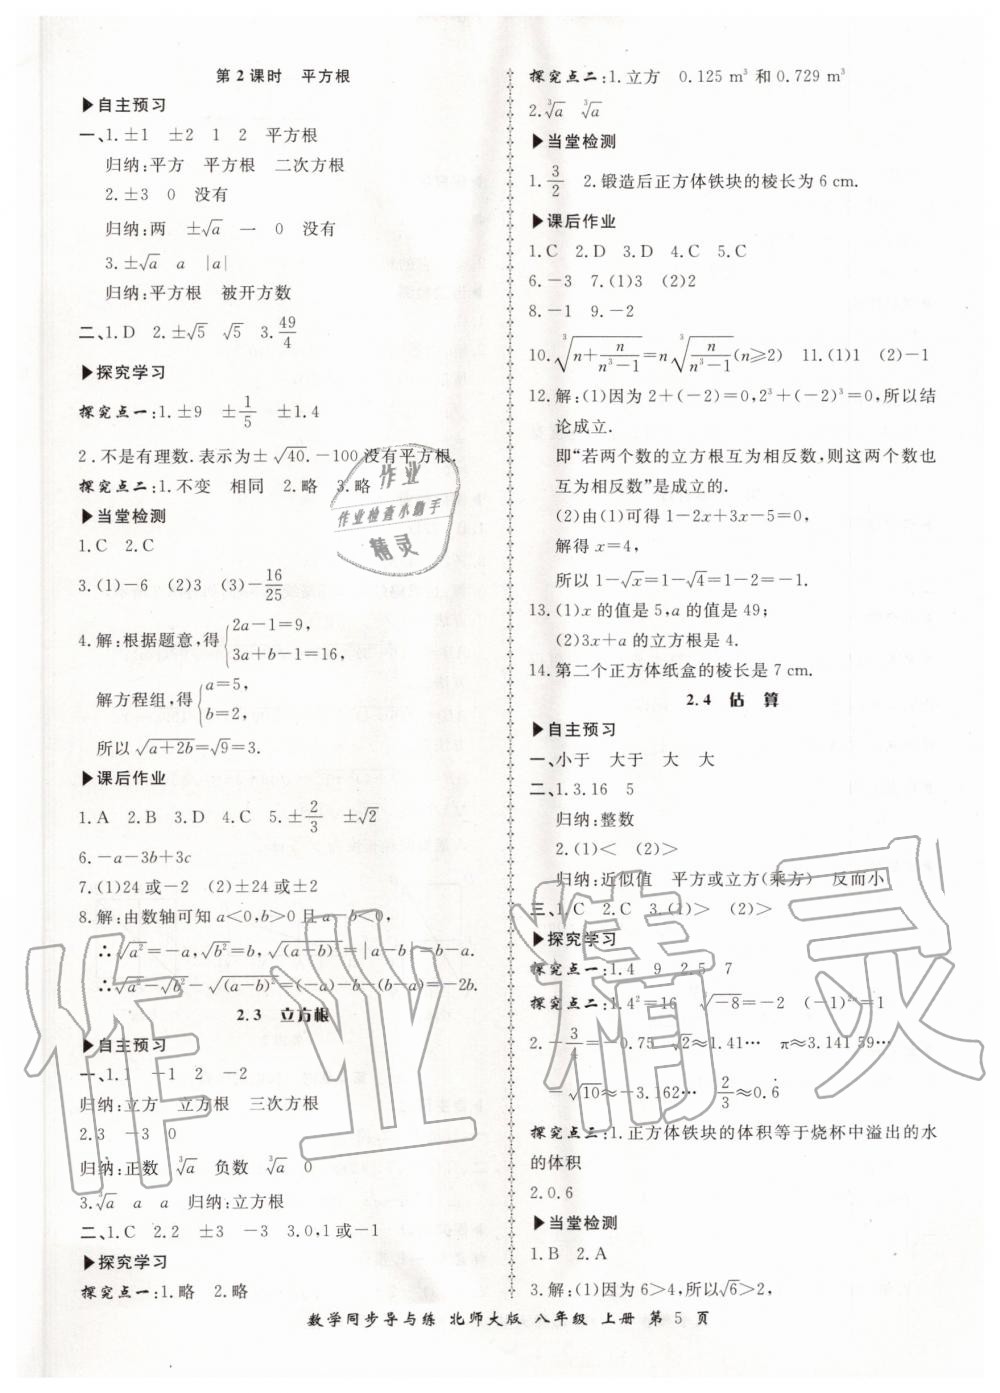 第2课时　平方根
▶自主预习
一、1.±1　±2　1　2　平方根
归纳:平方　平方根　二次方根
2.±3　0　没有
归纳:两　±√a　一　0　没有
3.±√a　a　|a|
归纳:平方根　被开方数
二、1.D　2.±√5　√5　3.49/4
▶探究学习
探究点一:1.±9　±1/5　±1.4
2.不是有理数.表示为±√40.－100没有平方根.
探究点二:1.不变　相同　2.略　3.略
▶当堂检测
1.C　2.C
3.(1)－6　(2)7　(3)－16/25
4.解:根据题意,得{2a－1＝9,
3a＋b－1＝16,
解方程组,得{a＝5,
b＝2,
所以√(a＋2b)＝√9＝3.
▶课后作业
1.A　2.B　3.D　4.C　5.±2/3　±√2
6.－a－3b＋3c
7.(1)24或－2　(2)±24或±2
8.解:由数轴可知a＜0,b＞0且a－b＜0,
∴√a²＝－a,√b²＝b,√(a－b)²＝|a－b|＝b－a.
∴√a²－√b²－√(a－b)²＝(－a)－b－(b－a)＝－2b.
2.3　立方根
▶自主预习
一、1.1　－1　2　－2
归纳:立方　立方根　三次方根
2.3　－3　0
归纳:正数　∛a　负数　∛a　0
3.∛a　a　a　归纳:立方根
二、1.C　2.2　±3　－3　3.0,1或－1
▶探究学习
探究点一:1.略　2.略
探究点二:1.立方　0.125 m³和0.729 m³
2.∛a　∛a
▶当堂检测
1.3/2　2.锻造后正方体铁块的棱长为6 cm.
▶课后作业
1.C　2.D　3.D　4.C　5.C
6.－3　7.(1)3　(2)2
8.－1　9.－2
10.∛(n＋n/(n³－1))＝n∛(n/(n³－1))(n≥2)　11.(1)1　(2)－1
12.解:(1)因为2＋(－2)＝0,2³＋(－2)³＝0,所以结
论成立.
即“若两个数的立方根互为相反数,则这两个数也
互为相反数”是成立的.
(2)由(1)可得1－2x＋3x－5＝0,
解得x＝4,
所以1－√x＝1－√4＝1－2＝－1.
13.(1)x的值是5,a的值是49;
(2)3x＋a的立方根是4.
14.第二个正方体纸盒的棱长是7 cm.
2.4　估　算
▶自主预习
一、小于　大于　大　大
二、1.3.16　5
归纳:整数
2.(1)＜　(2)＞
归纳:近似值　平方或立方(乘方)　反而小
三、1.C　2.C　3.(1)＞　(2)＞
▶探究学习
探究点一:1.4　9　2.5　7
探究点二:1.4²＝16　∛－8＝－2　(－1)²＝1
2.－3/4＝－0.75　√2≈1.41…　π≈3.141 59…
－√10≈－3.162…　2/3≈0.6̇
探究点三:1.正方体铁块的体积等于烧杯中溢出的水
的体积
2.0.6
▶当堂检测
1.B　2.A
3.解:(1)因为6＞4,所以√6＞2,
数学同步导与练　北师大版　八年级　上册　第 5 页
作业
作业检查小助手
精灵
作业精灵